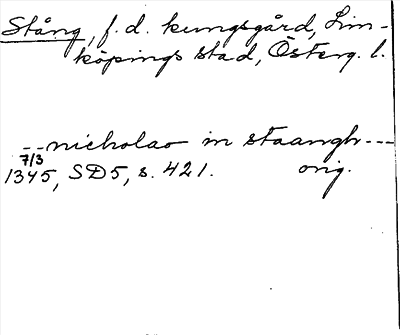 Stång, f.d. kungsgård, Lin-
köpings stad, Österg. l.
--nicholao in staangh---
7/3
1345, SD5, s. 421. orig.